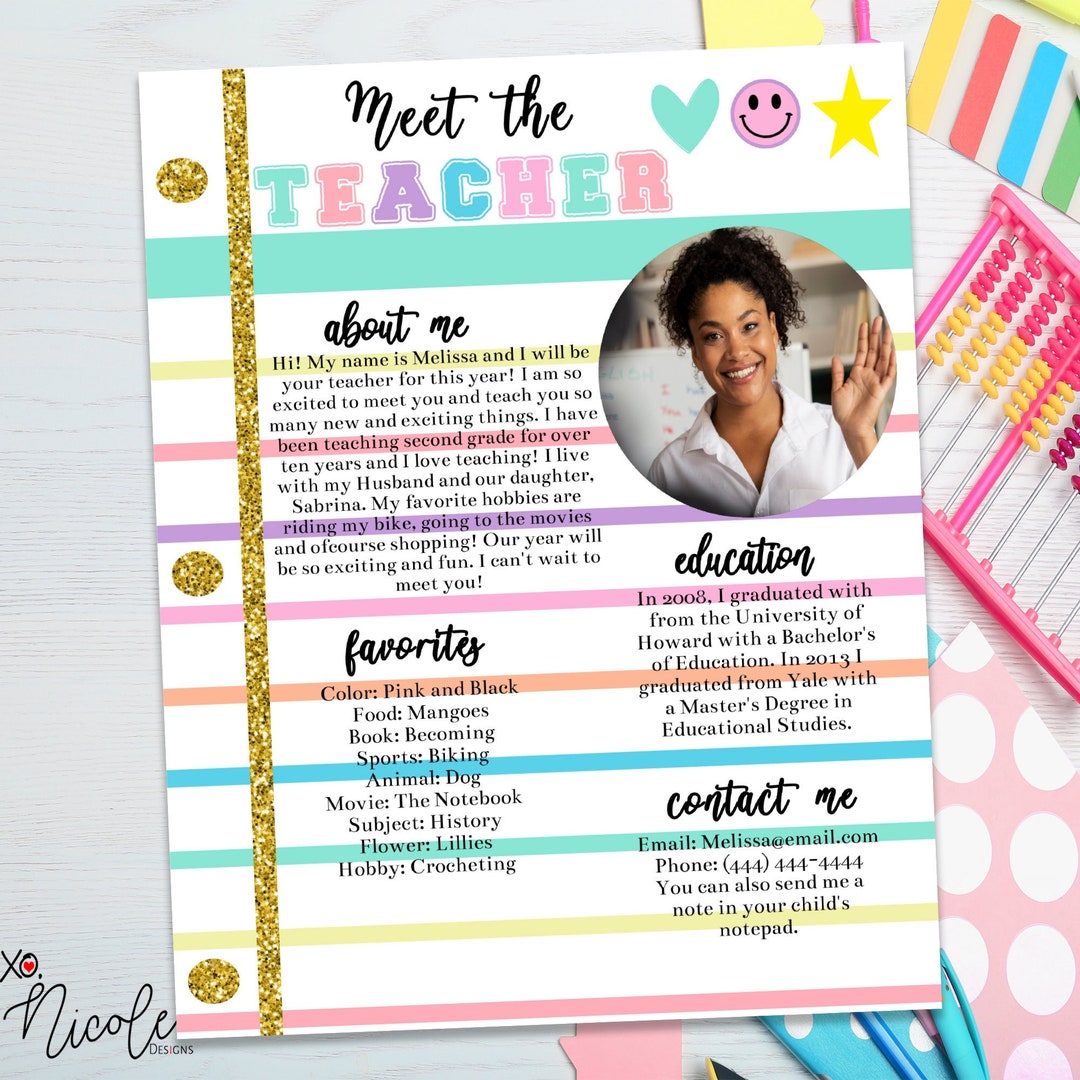 Meet the
TEACHER
about me
Hi! My name is Melissa and I will be
your teacher for this year! I am so
excited to meet you and teach you so
many new and exciting things. I have
been teaching second grade for over
ten years and I love teaching! I live
with my Husband and our daughter,
Sabrina. My favorite hobbies are
riding my bike, going to the movies
and ofcourse shopping! Our year will
be so exciting and fun. I can't wait to
meet you!
favorites
Color: Pink and Black
Food: Mangoes
Book: Becoming
Sports: Biking
Animal: Dog
Movie: The Notebook
Subject: History
Flower: Lillies
Hobby: Crocheting
education
In 2008, I graduated with
from the University of
Howard with a Bachelor's
of Education. In 2013 I
graduated from Yale with
a Master's Degree in
Educational Studies.
contact me
Email: Melissa@email.com
Phone: (444) 444-4444
You can also send me a
note in your child's
notepad.
XO,
Nicole
DESIGNS